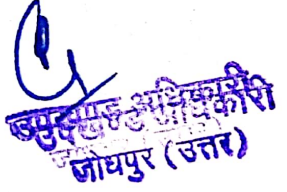 उपखण्ड अधिकारी
जोधपुर (उत्तर)